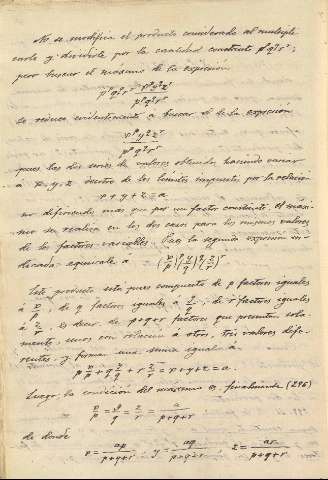 No se modifica el producto considerado al multipli
carlo y dividirlo por la cantidad constante p^p q^q r^r;
pero buscar el máximo de la expresión
p^p q^q r^r \frac{x^p y^q z^r}{p^p q^q r^r}
se reduce evidentemente á buscar el de la expresión
\frac{x^p y^q z^r}{p^p q^q r^r}
pues las dos series de valores obtenidos haciendo variar
á x, y, z dentro de los límites impuestos por la relación
x + y + z = a
no difiriendo más que por un factor constante el máxi
mo se realiza en los dos casos para los mismos valores
de los factores variables. Esta segunda expresión in-
dicada, equivale á (\frac{x}{p})^p (\frac{y}{q})^q (\frac{z}{r})^r
Este producto está pues compuesto de p factores iguales
á \frac{x}{p}, de q factores iguales á \frac{y}{q}, de r factores iguales
á \frac{z}{r}, es decir de p+q+r factores que presentan sola-
mente, unos con relación á otros, tres valores dife-
rentes y forman una suma igual á
p\frac{x}{p} + q\frac{y}{q} + r\frac{z}{r} = x + y + z = a.
Luego la condición del máximo es, finalmente (296)
\frac{x}{p} = \frac{y}{q} = \frac{z}{r} = \frac{a}{p+q+r}
de donde
x = \frac{ap}{p+q+r} y = \frac{aq}{p+q+r} z = \frac{ar}{p+q+r}